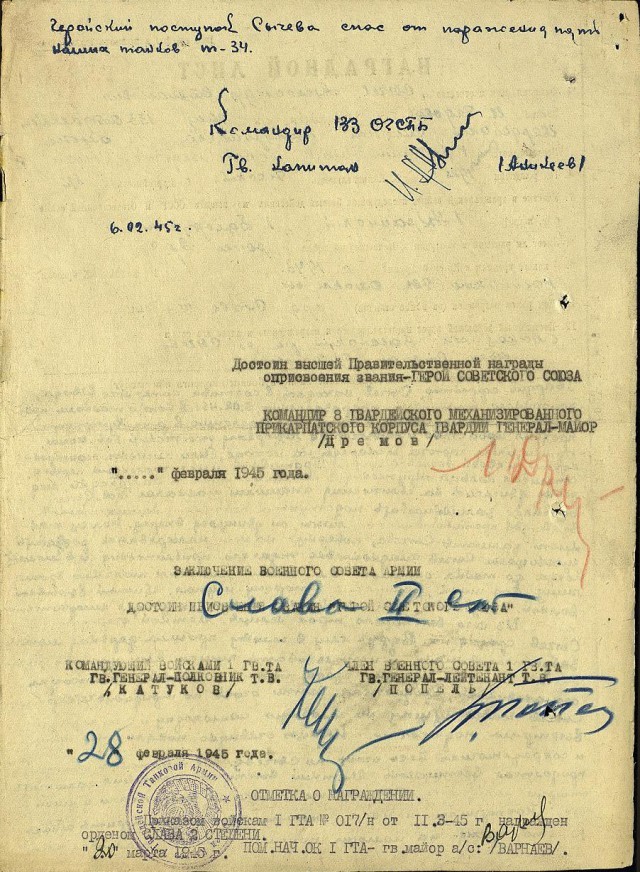 Геройский поступок Сычева спас от поражения пять
наших танков Т-34.
Командир 133 ОГСТБ
Гв. капитан /Аникеев/
6.02.45г.
Достоин высшей Правительственной награды
оприсвоения звания-ГЕРОЙ СОВЕТСКОГО СОЮЗА
КОМАНДИР 8 ГВАРДЕЙСКОГО МЕХАНИЗИРОВАННОГО
ПРИКАРПАТСКОГО КОРПУСА ГВАРДИИ ГЕНЕРАЛ-МАЙОР
/Дремов/
"....." февраля 1945 года.
ЗАКЛЮЧЕНИЕ ВОЕННОГО СОВЕТА АРМИИ
ДОСТОИН ПРИСВОЕНИЯ ЗВАНИЯ "ГЕРОЙ СОВЕТСКОГО СОЮЗА"
Слава II ст
КОМАНДУЮЩИЙ ВОЙСКАМИ 1 ГВ.ТА ЧЛЕН ВОЕННОГО СОВЕТА 1 ГВ.ТА
ГВ.ГЕНЕРАЛ-ПОЛКОВНИК Т.В. ГВ.ГЕНЕРАЛ-ЛЕЙТЕНАНТ Т.В.
/КАТУКОВ/ /ПОПЕЛЬ/
"28" февраля 1945 года.
ОТМЕТКА О НАГРАЖДЕНИИ.
Приказом войскам I ГТА № 017/н от II.3-45 г. награжден
орденом СЛАВА 2 СТЕПЕНИ.
"20" марта 1945 г. ПОМ.НАЧ.ОК I ГТА- гв.майор а/с: /ВАРНАЕВ/